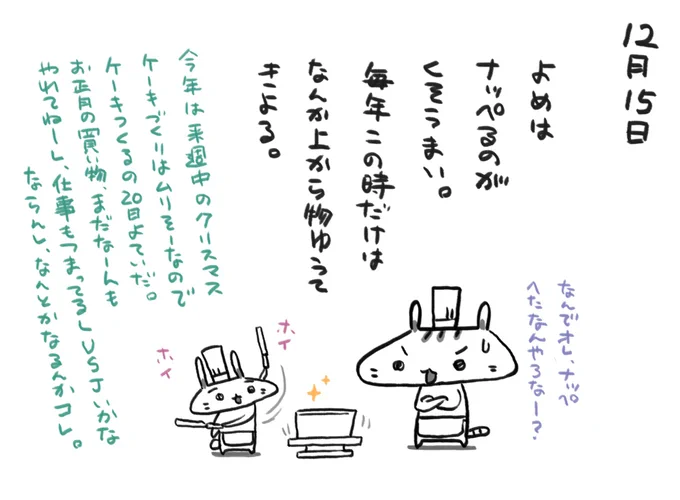 12月15日
よめは
ナッペるのが
くそうまい。
毎年この時だけは
なんか上から物ゆうて
きよる。
今年は来週中のクリスマス
ケーキづくりはムリそーなので
ケーキつくるの20日よていだ。
お正月の買い物、まだなーんも
やれてねーし、仕事もつまってるしUSJいかな
ならんし、なんとかなるんかコレ。
なんでオレ、ナッペ
へたなんやろなー?
ホイ
ホイ